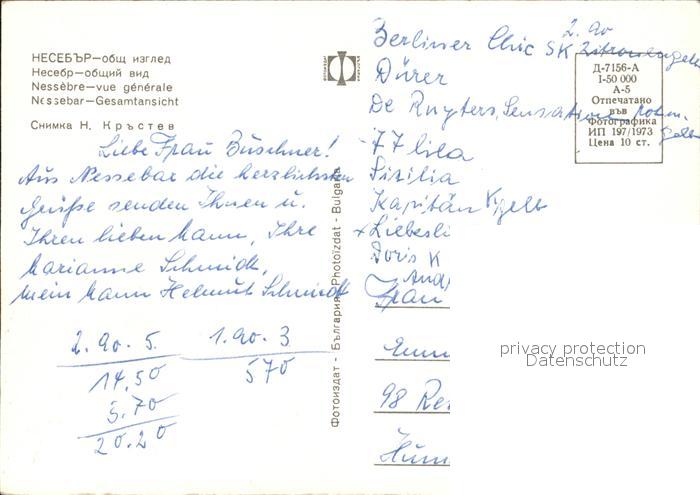 НЕСЕБЪР—общ изглед
Несебр—общий вид
Nessèbre—vue générale
Nessebar—Gesamtansicht
Снимка Н. Кръстев
Liebe Frau Büschner!
Aus Nessebar die herzlichsten
Grüße senden Ihnen u.
Ihren lieben Mann, Ihre
Marianne Schmidt,
mein Mann Helmut Schmidt
2. Ao. 5.
14.50
5.70
20.20
1. Ao. 3
570
Фотоиздат - България Photoizdat - Bulgaria
2. Ao
Berliner Chic SK Zitronengelb
Dürer
De Ruyters Sensation
77 lila
Sizilia
Kapitän K gelb
x Liebesli
Doris K
And
Frau
98
Д-7156-А
I-50 000
А-5
Отпечатано
във
Фотографика
ИП 197/1973
Цена 10 ст.
privacy protection
Datenschutz